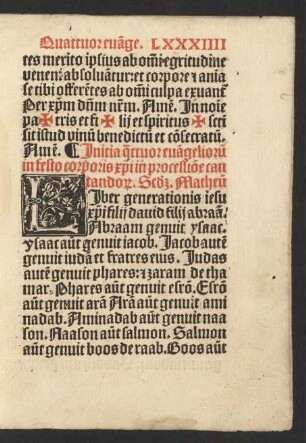 Quattuor euāge. LXXXIIII
tes merito ipsius ab om̄i egritudine
veneni absoluātur: et corpore ⁊ aīa
se tibi offerētes ab om̄i culpa exuāt̄
Per xp̄m dn̄m nr̄m. Amē. In noīe
pa✠tris et fi✠lij et spiritus✠scti
sit istud vinū benedictū et cōsecratū.
Amē. ¶ Initia q̄ttuor euāgelioꝝ
in festo corporis xp̄i in processiōe can
tandoꝝ. Scdꝫ. Matheū
Liber generationis iesu
xp̄i filij dauid filij abraā.
Abraam genuit ysaac.
ysaac aūt genuit iacob. Jacob autē
genuit iudā et fratres eius. Judas
autē genuit phares: ⁊ zaram de tha
mar. Phares aūt genuit esrō. Esrō
aūt genuit arā Arā aūt genuit ami
nadab. Aminadab aūt genuit naa
son. Naason aūt salmon. Salmon
aūt genuit boos de raab. Boos aūt